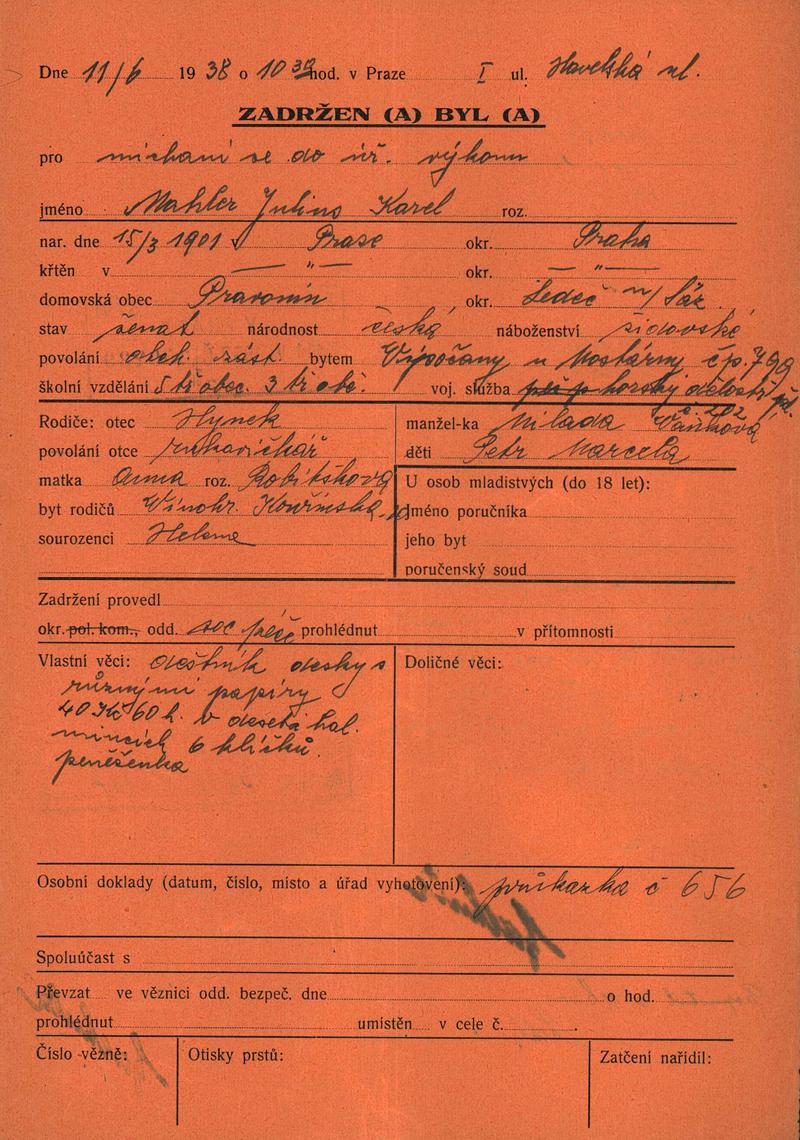 Dne 11/6 1938 o 10 30 hod. v Praze I ul. Havelská ul.
ZADRŽEN (A) BYL (A)
pro míchaní se do úř. výkonu
jméno Mahler Julius Karel roz.
nar. dne 15/3 1901 v Praze okr. Praha
křtěn v — " — okr. — " —
domovská obec Pravonín, okr. Ledeč n/ Sáz.
stav ženat národnost česká náboženství židovské
povolání obch. zást. bytem Vysočany u Mostárny čp. 799
školní vzdělání 5 tř obec. 3 tř obč. voj. služba horský dělostř. pl.
č. 202
Rodiče: otec Hynek manžel-ka Milada Vaňková
povolání otce rukavičkář děti Petr Marcela
matka Anna roz. Robitšková U osob mladistvých (do 18 let):
byt rodičů Vinohr. Kouřimská jméno poručníka
sourozenci Helena jeho byt
poručenský soud
Zadržení provedl
okr. pol. kom., odd. soc péče prohlédnut v přítomnosti
Vlastní věci: deštník desky s Doličné věci:
různými papíry
40 Kč 60 h. v deseti hal.
mincích 6 klíčků
peněženka
Osobní doklady (datum, číslo, místo a úřad vyhotovení): průkazka č 656
Spoluúčast s
Převzat ve věznici odd. bezpeč. dne o hod.
prohlédnut umístěn v cele č.
Číslo vězně: Otisky prstů: Zatčení nařídil: